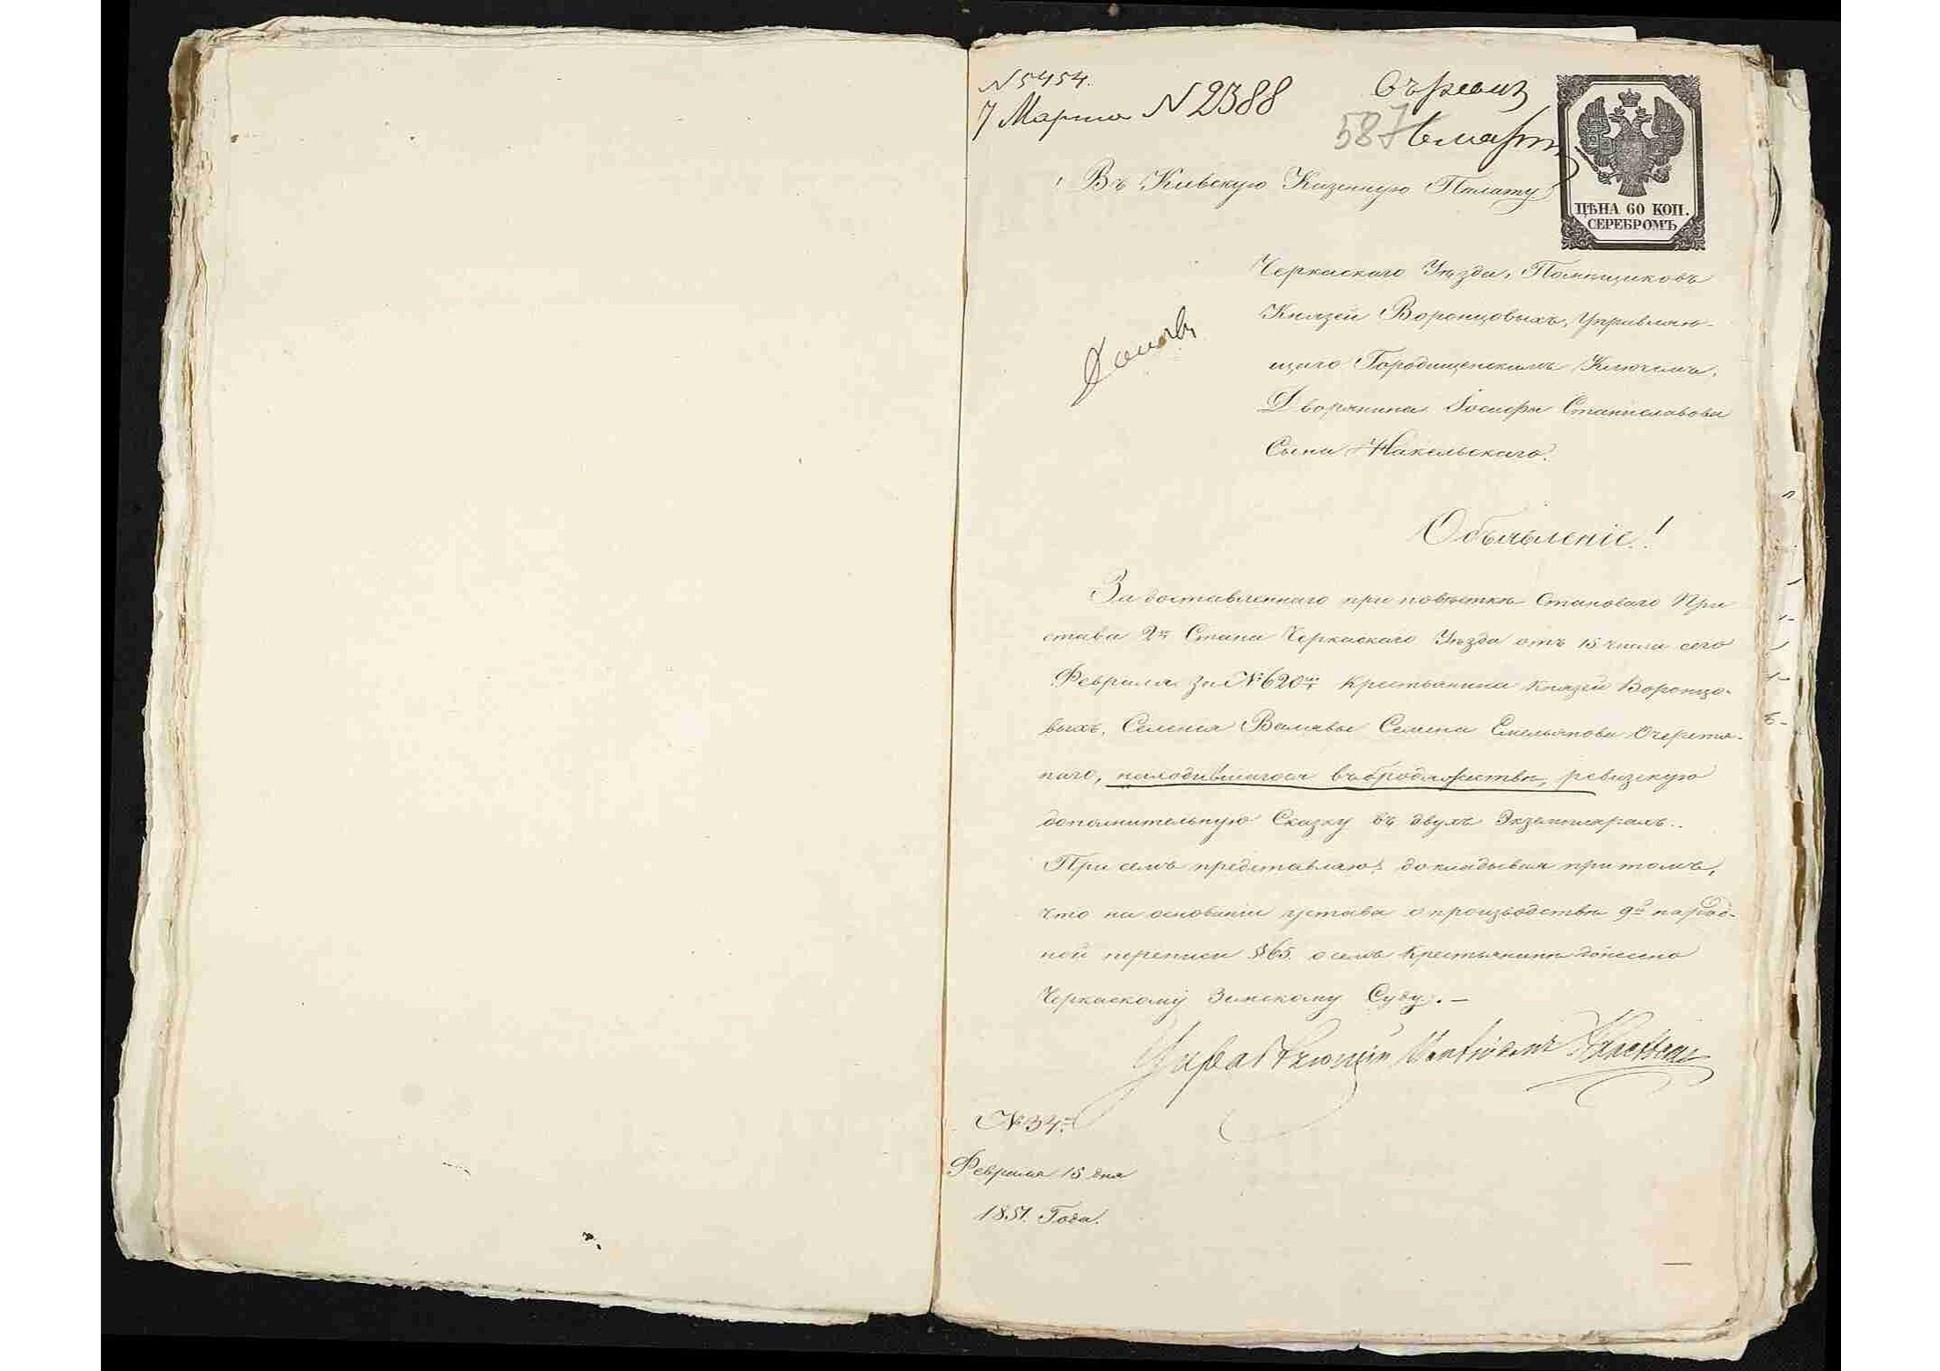 N 5454.
7 Марта N 2388
587
Въ Киевскую Казенную Палату
ЦѢНА 60 КОП.
СЕРЕБРОМЪ
Черкаскаго Уѣзда, Помѣщиковъ
Князей Воронцовыхъ, Управляю-
щаго Городищенскимъ Ключемъ,
Дворянина Іосифа Станиславова
Сына Накельскаго.
Объявленіе!
За доставленнаго при повѣсткѣ Становаго При
става 2го Стана Черкаскаго Уѣзда отъ 15 числа сего
Февраля за № 620мъ крестьянина Князей Воронцо-
выхъ, Селенія Валявы Семена Емельянова Очеретя-
наго, находившагося въ бродяжествѣ, ревизскую
дополнительную Сказку въ двухъ Экземплярахъ.
При семъ представляю, докладывая при томъ,
что на основаніи устава о производствѣ 9й народ-
ной переписи §65. о семъ Крестьянинѣ донесено
Черкаскому Земскому Суду. —
Управляющій Накельскі
№ 34.
Февраля 15 дня
1851. Года.